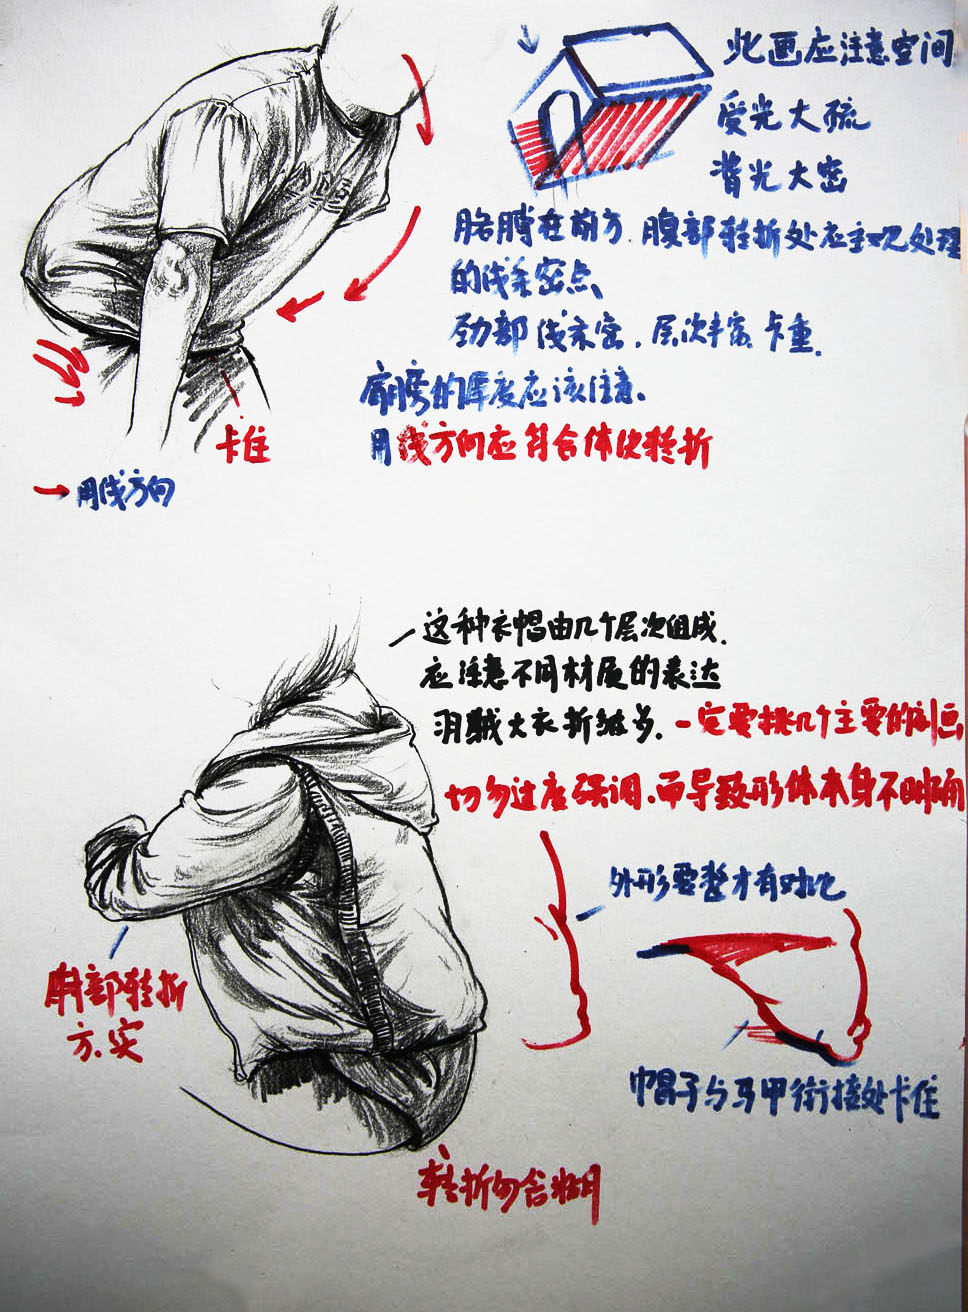 此画应注意空间
受光大疏
背光大密
胳膊在前方.腹部转折处应主观处理
的线条密点、
劲部线条密.层次丰富.卡重.
肩膀的厚度应该注意.
用线方向应符合体块转折
卡住
→用线方向
这种衣帽由几个层次组成.
应注意不同材质的表达
羽绒大衣折皱多.一定要挑几个主要的刻画
切勿过度强调.而导致形体本身不明确
外形要整才有对比
肘部转折
方.实
帽子与马甲衔接处卡住
转折勿含糊